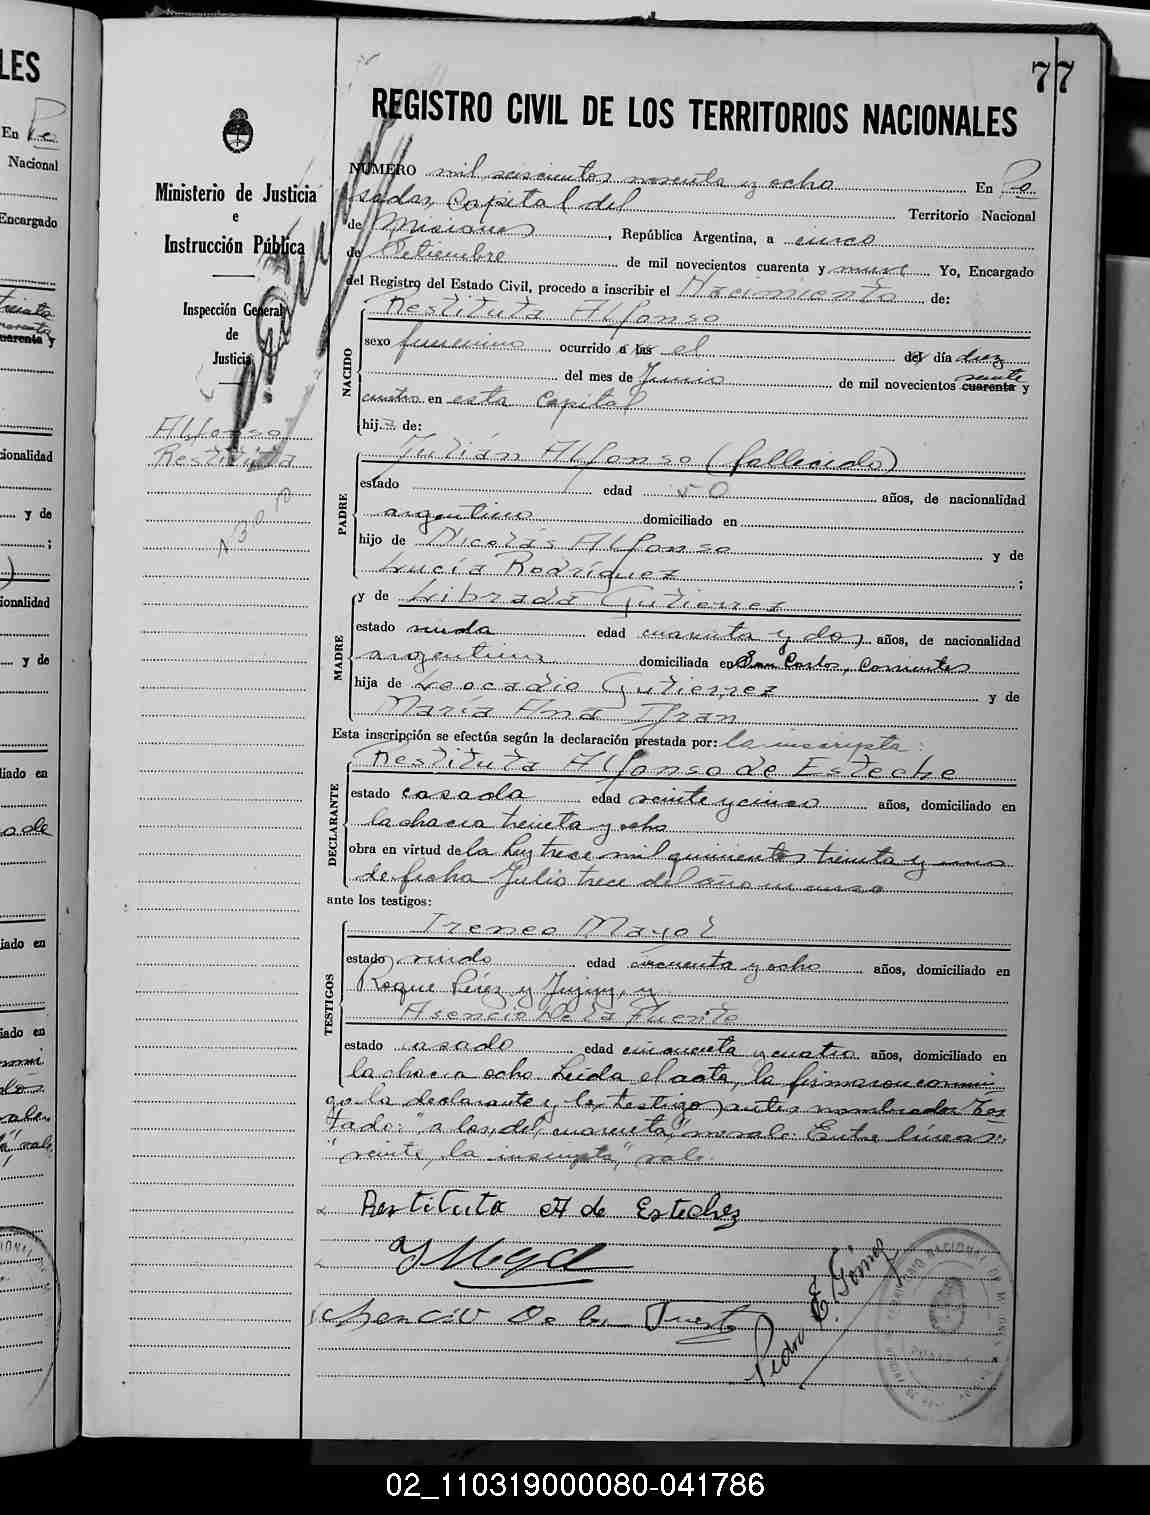 77
REGISTRO CIVIL DE LOS TERRITORIOS NACIONALES
Ministerio de Justicia
e
Instrucción Pública
Inspección General
de
Justicia
Alfonso
Restituta
NUMERO mil seiscientos noventa y ocho En Po
sadas, Capital del Territorio Nacional
de Misiones, República Argentina, a cinco
de Setiembre de mil novecientos cuarenta y nueve Yo, Encargado
del Registro del Estado Civil, procedo a inscribir el Nacimiento de:
Restituta Alfonso
NACIDO
sexo femenino ocurrido a las el del día diez
del mes de Junio de mil novecientos cuarenta veinte y
cuatro en esta Capital
hija de:
Julián Alfonso (fallecido)
PADRE
estado edad 50 años, de nacionalidad
argentino domiciliado en
hijo de Nicolás Alfonso y de
Lucía Rodríguez ;
y de Librada Gutierrez
MADRE
estado viuda edad cuarenta y dos años, de nacionalidad
argentina domiciliada en San Carlos, Corrientes
hija de Leocadio Gutierrez y de
María Ana
Esta inscripción se efectúa según la declaración prestada por: la inscripta:
Restituta Alfonso de Esteche
DECLARANTE
estado casada edad veinte y cinco años, domiciliado en
la chacra treinta y ocho
obra en virtud de la ley trece mil quinientos treinta y uno
de fecha Julio trece del año en curso
ante los testigos:
Ireneo Mayol
TESTIGOS
estado viudo edad cincuenta y ocho años, domiciliado en
Roque Pérez y Jujuy, y
Asencio De la Fuente
estado casado edad cincuenta y cuatro años, domiciliado en
la chacra ocho. Leida el acta, la firmaron conmi
go la declarante y los testigos antes nombrados. Tes
tado: "a las, del, cuarenta," no vale. Entre líneas:
"veinte, la inscripta," vale.
Restituta A de Esteche
De la Fuente
Pedro E. Gómez
02_110319000080-041786